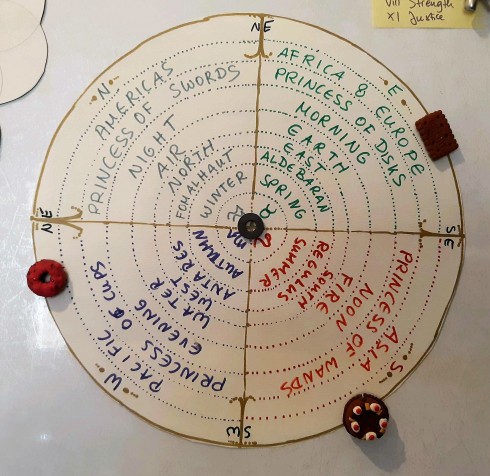 VIII Strength
XI Justice
NE
AFRICA & EUROPE
PRINCESS OF DISKS
MORNING
EARTH
EAST
ALDEBARAN
SPRING
E
SE
ASIA
PRINCESS OF WANDS
NOON
FIRE
SOUTH
REGULUS
SUMMER
S
SW
PACIFIC
PRINCESS OF CUPS
EVENING
WATER
WEST
ANTARES
AUTUMN
W
NE
AMERICAS
PRINCESS OF SWORDS
NIGHT
AIR
NORTH
FOMALHAUT
WINTER
N